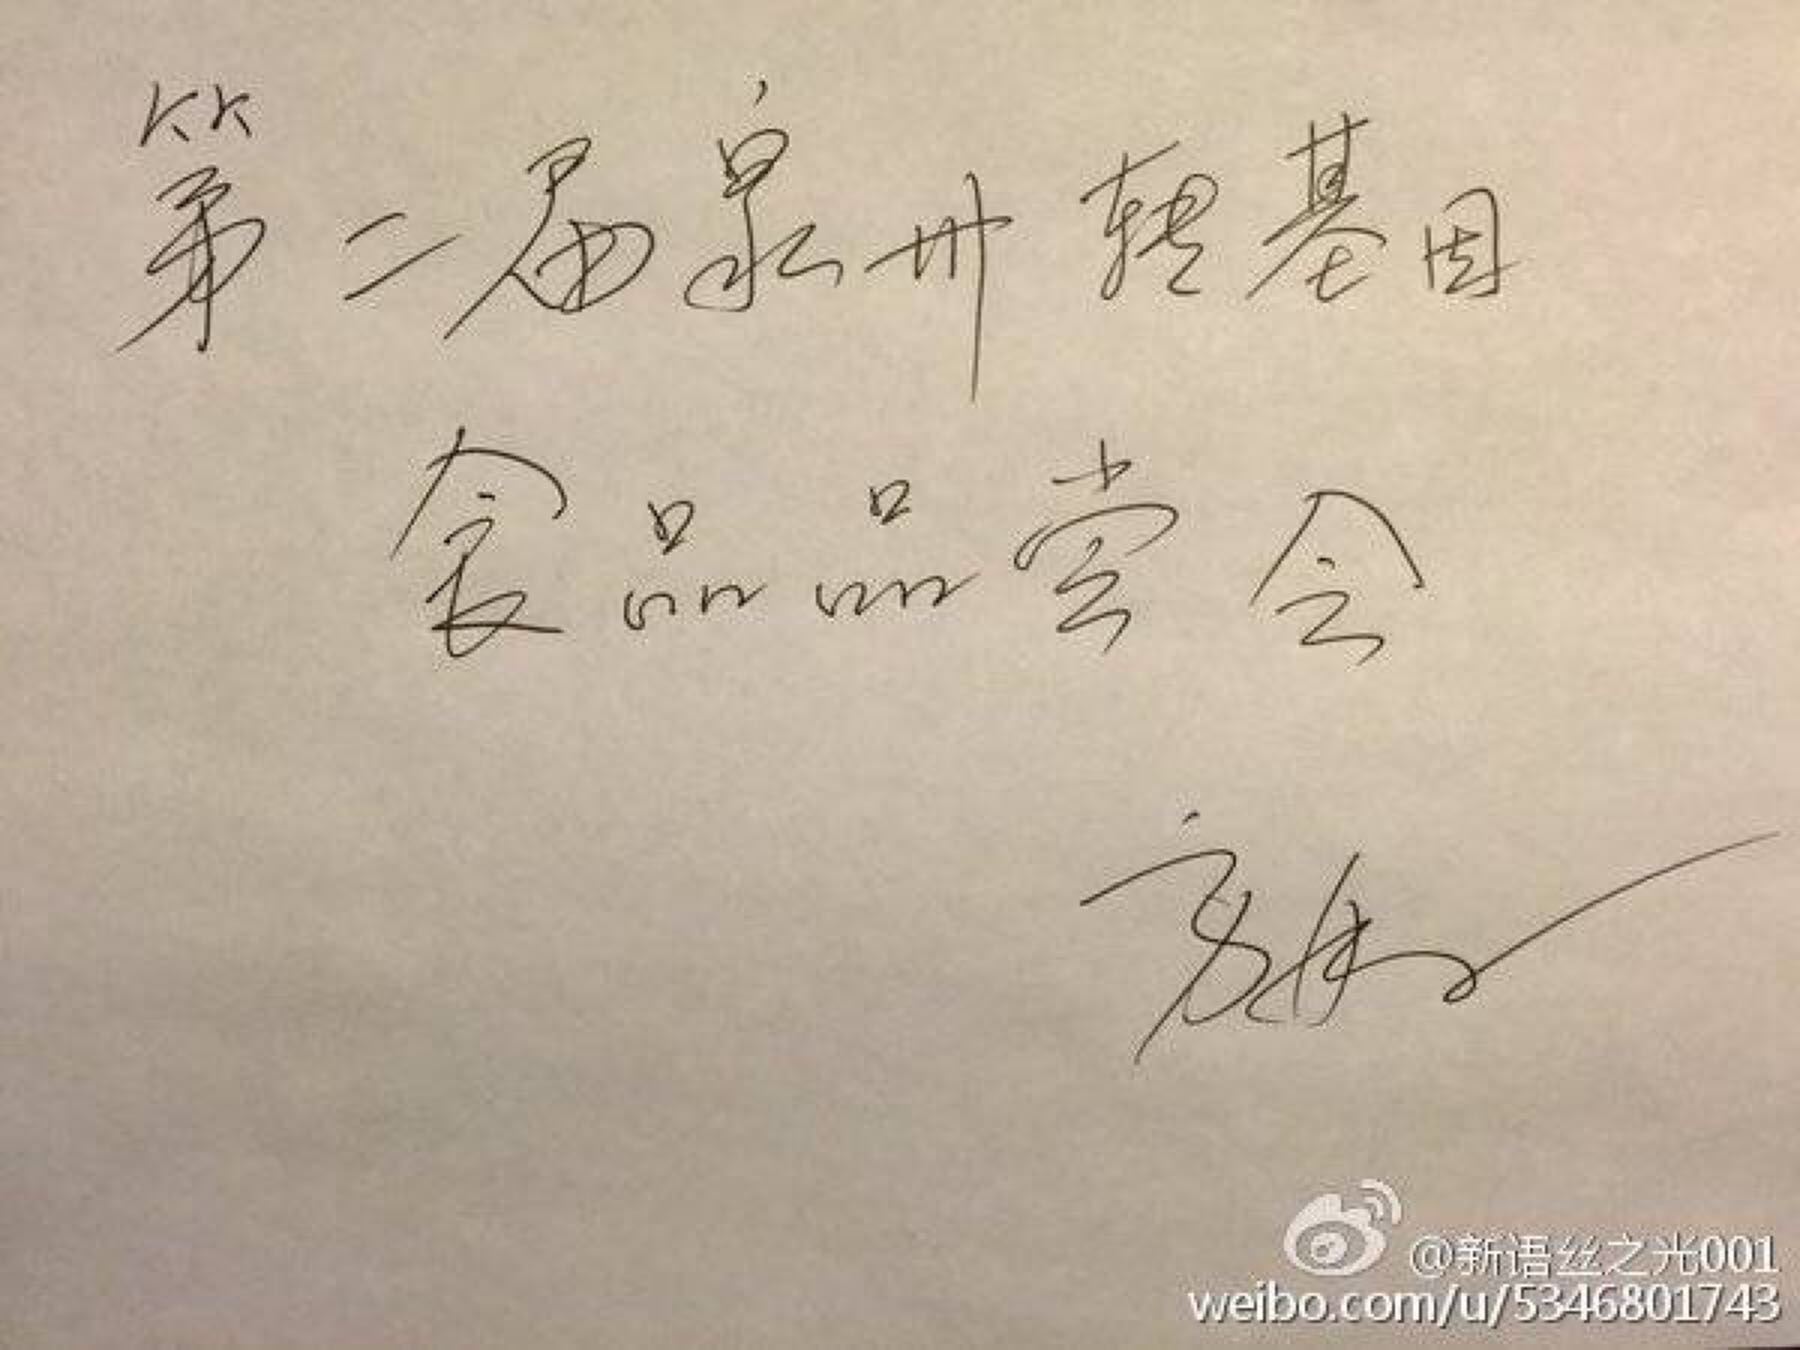 第二届泉州转基因
食品品尝会
@新语丝之光001
weibo.com/u/5346801743